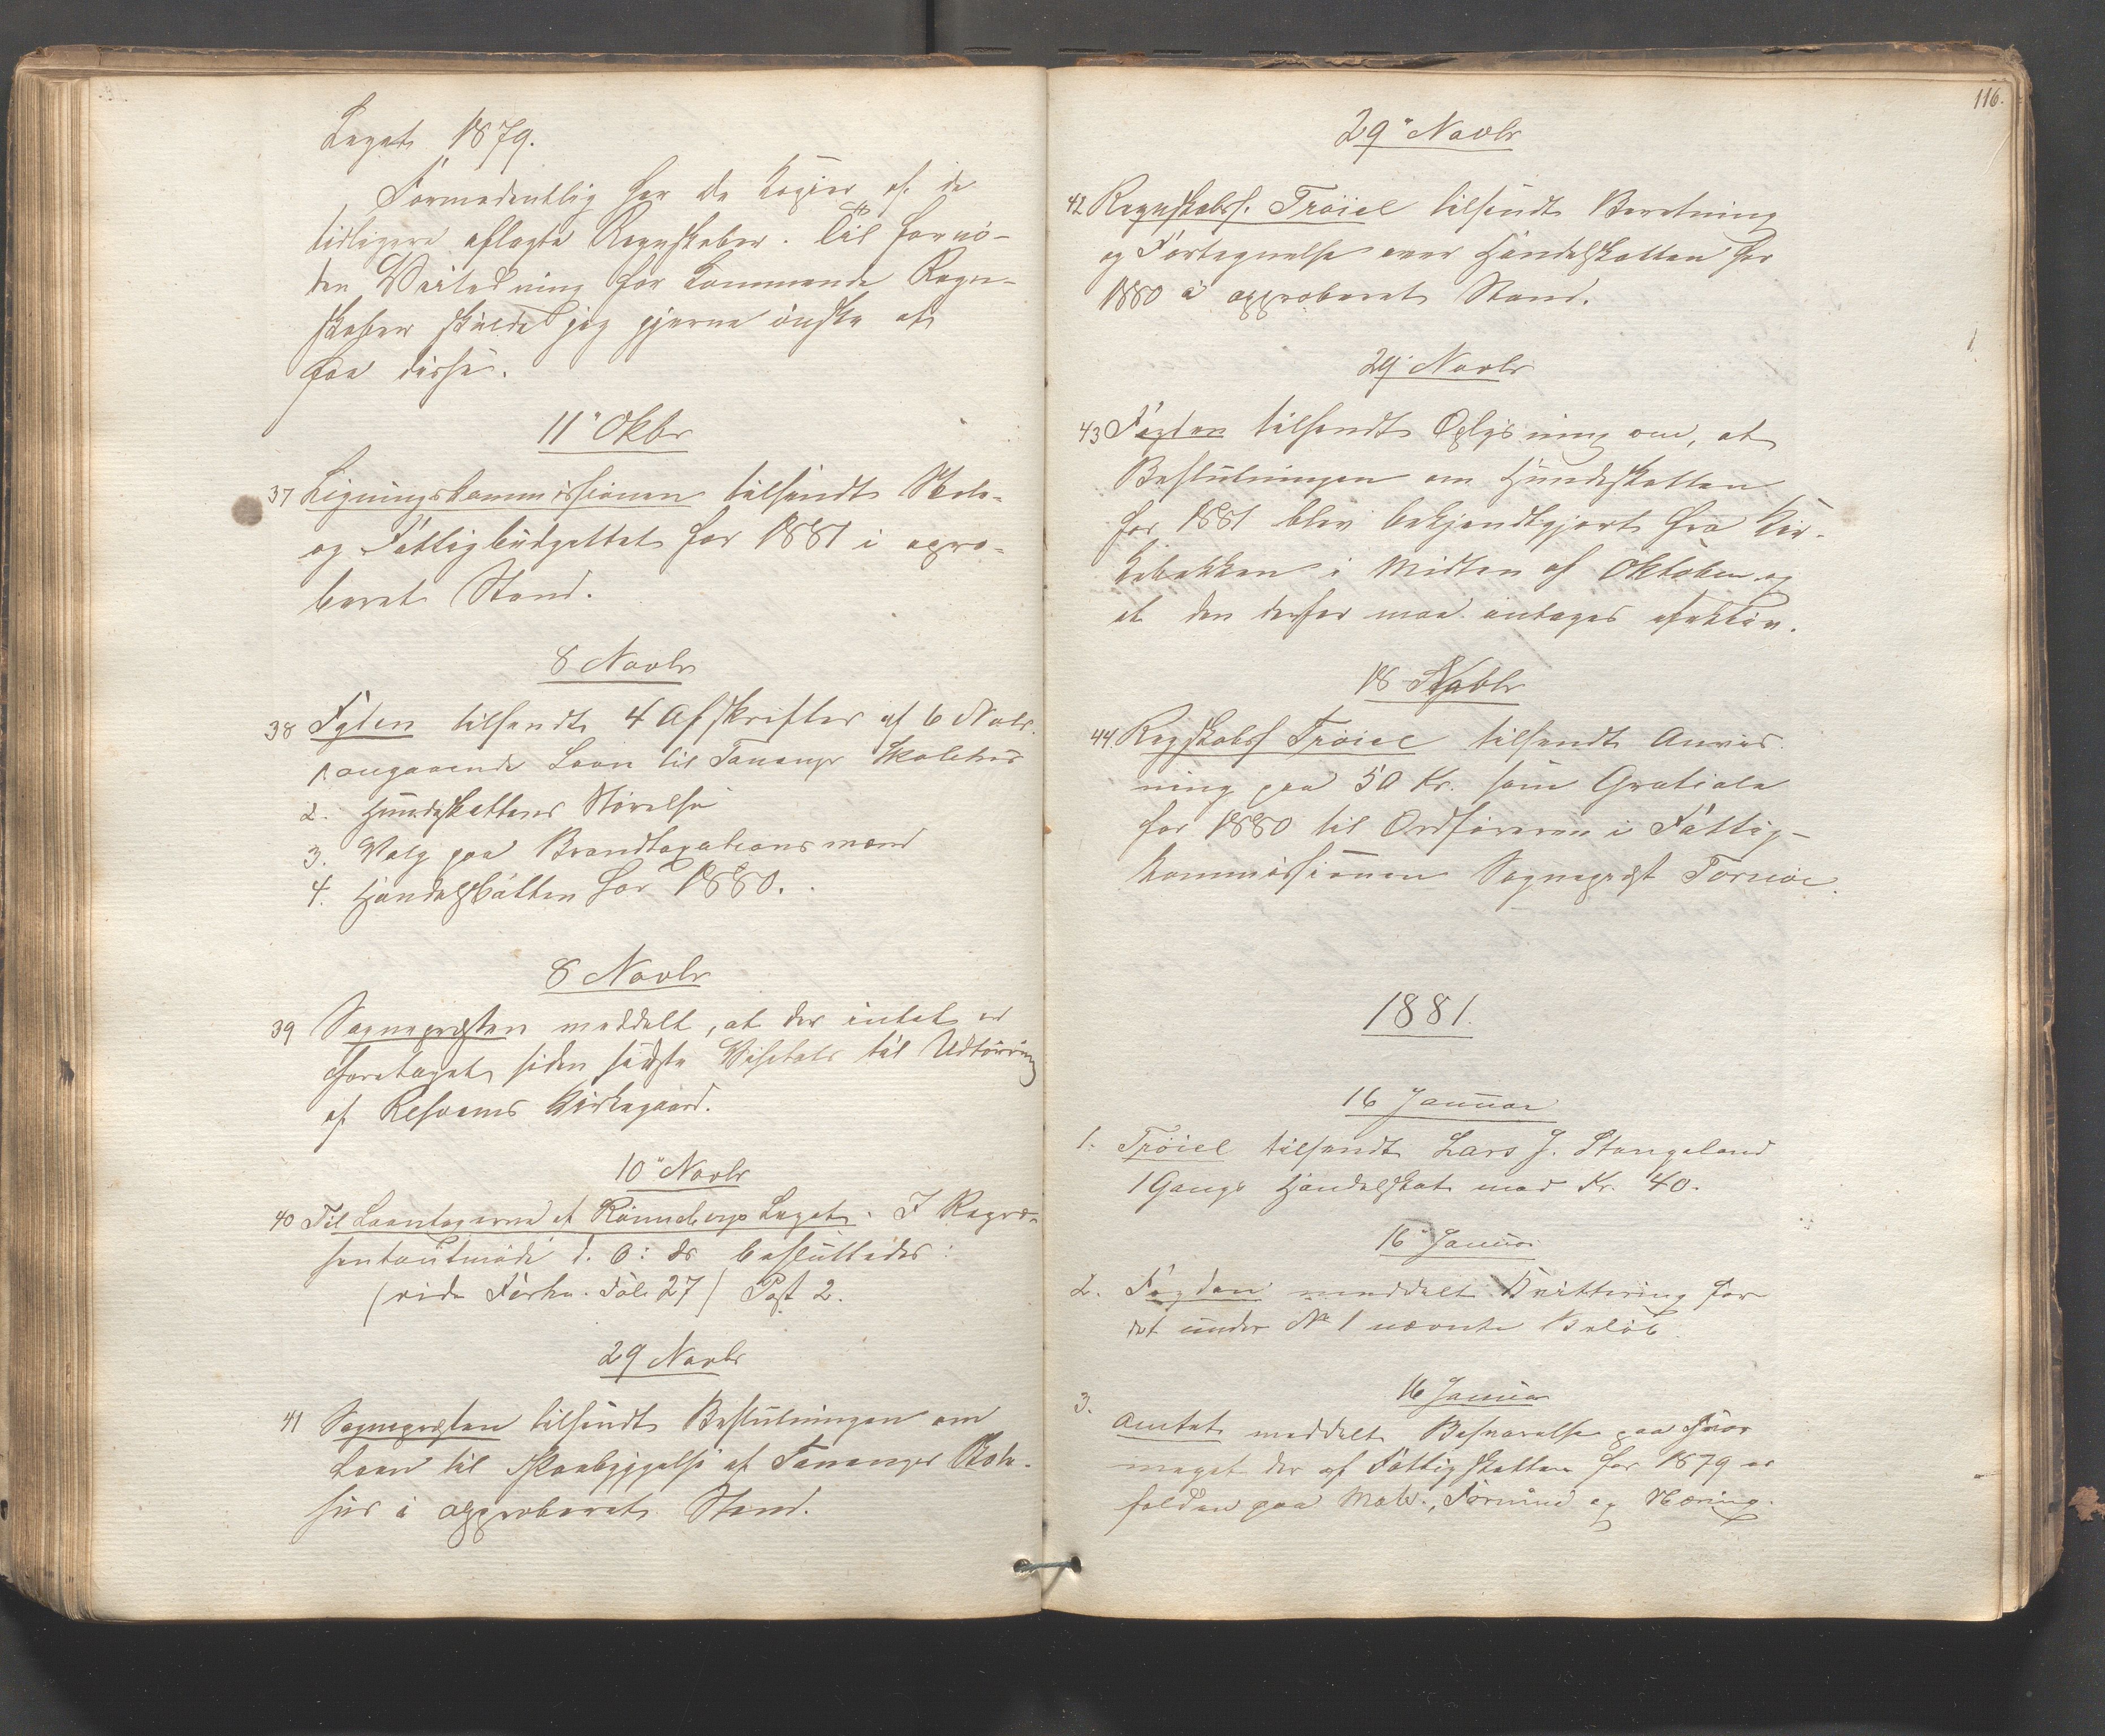 Legat 1879.
Formodentlig har De Kopier af de
tidligere aflagte Regnskaber. Til fornø-
den Veiledning for kommende Regn-
skaber skulde jeg gjerne ønske at
faa disse.
11" Okbr
37 Ligningskommissionen tilsendt Skole-
og Fattigbudgettet for 1881 i appro-
beret Stand.
8 Novbr
38 Fgden tilsendt 4 Afskrifter af 6 Novbr.
1. angaaende Laan til Tananger Skolehus
2. Hundeskattens Størelse
3. Valg paa Brandtaxationsmænd
4. Handelsskatten for 1880.
8 Novbr
39 Sognepræsten meddelt, at der intet er
foretaget siden sidste Visitats til Udtørring
af Risvams Kirkegaard.
10" Novbr
40 Til Laantagerne af Rønnebergs Legat. I Repræ-
sentantmøde d. 6: ds besluttedes:
(vide Forhn. Fol. 27) Post 2.
29 Novbr
41 Sognepræsten tilsendt Beslutningen om
Laan til Paabyggelse af Tananger Skole-
hus i approberet Stand.
116.
29" Novbr
42 Regnskabsf. Trøiel tilsendt Beretning
og Fortegnelse over Handelsskatten for
1880 i approberet Stand.
29" Novbr
43 Fogden tilsendt Oplysning om, at
Beslutningen om Hundeskatten
for 1881 blev bekjendtgjort fra Kir-
kebakken i Midten af Oktober og
at den derfor maa antages effektiv.
18 Novbr
44. Regskabsf Trøiel tilsendt Anvis-
ning paa 50 Kr. som Gratiale
for 1880 til Ordføreren i Fattig-
kommissionen Sognepræst Tornøe.
1881.
16 Januar
1. Trøiel tilsendt Lars J. Stangeland
1 Gangs Handelsskat med Kr. 40.
16 Januar
2. Fogden meddelt Kvittering for
det under No 1 nævnte Beløb.
16 Januar
3. Amtet meddelt Besvarelse paa hvor
meget der af Fattigskatten for 1879 er
falden paa Matr., Formue og Næring.